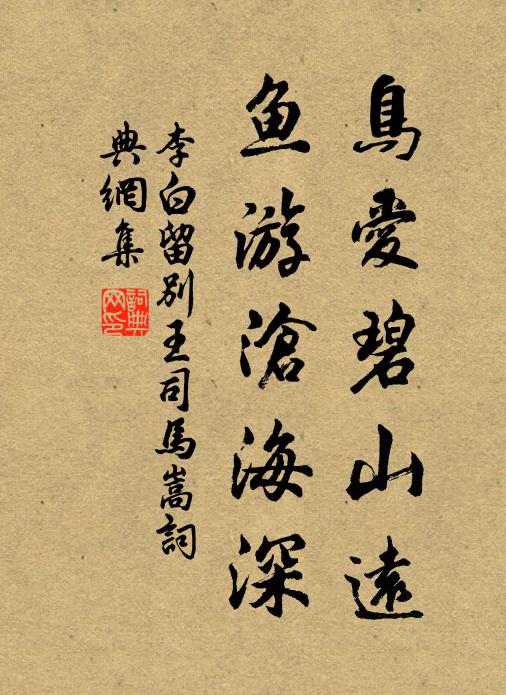 鳥愛碧山遠
魚游滄海深
李白留別王司馬嵩詞
典網集
詞典
网印